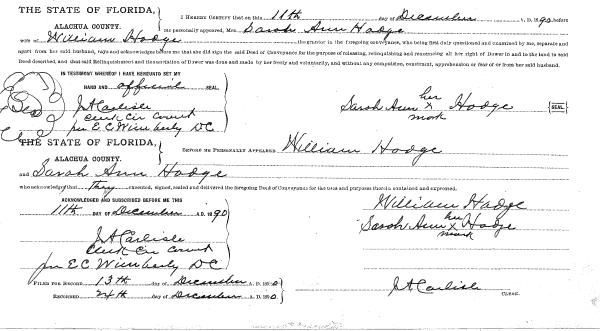 THE STATE OF FLORIDA,
ALACHUA COUNTY.
I HEREBY CERTIFY that on this 11th day of December A. D. 1890 before
me personally appeared, Mrs. Sarah Ann Hodge
wife of William Hodge the grantor in the foregoing conveyance, who being first duly questioned and examined by me, separate and
apart from her said husband, says and acknowledges before me that she did sign the said Deed of Conveyance for the purpose of releasing, relinquishing and renouncing all her right of Dower in and to the land in said
Deed described, and that said Relinquishment and Renunciation of Dower was done and made by her freely and voluntarily, and without any compulsion, constraint, apprehension or fear of or from her said husband.
IN TESTIMONY WHEREOF I HAVE HEREUNTO SET MY
HAND AND official SEAL.
J A Carlisle
Clerk Cir Court
per E.C Wimberly DC
her
Sarah Ann x Hodge
mark
SEAL
THE STATE OF FLORIDA,
ALACHUA COUNTY.
BEFORE ME PERSONALLY APPEARED William Hodge
and Sarah Ann Hodge
who acknowledged that they executed, signed, sealed and delivered the foregoing Deed of Conveyance for the uses and purposes therein contained and expressed.
ACKNOWLEDGED AND SUBSCRIBED BEFORE ME THIS
11th DAY OF December A. D. 1890
J A Carlisle
Clerk Cir Court
per E C Wimberly DC
William Hodge
her
Sarah Ann x Hodge
mark
FILED FOR RECORD 13th day of December A. D. 1890
RECORDED 24th day of December A. D. 1890
J A Carlisle
CLERK.